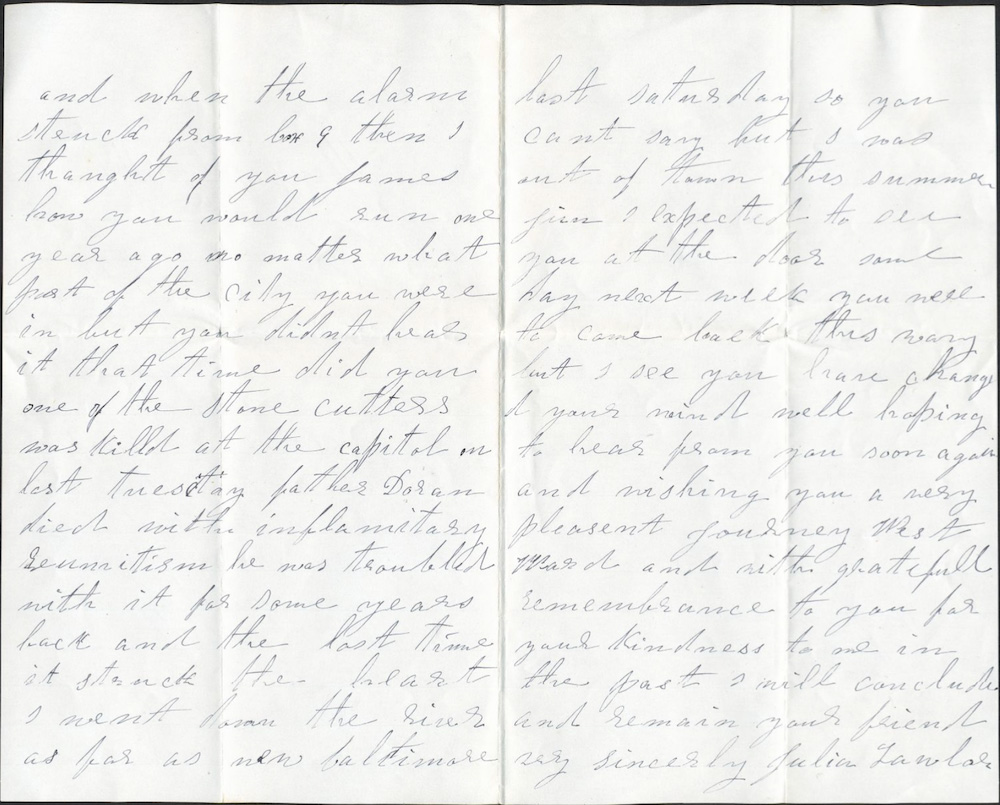 and when the alarm
struck from box 9 then I
thaught of you James
how you would run one
year ago no matter what
part of the city you were
in but you didnt hear
it that time did you
one of the stone cutters
was killd at the capitol on
last tuesday father Doran
died with inflamitary
reumitism he was troubled
with it for some years
back and the last time
it struck the heart
I went down the river
as far as new baltimore
last saturday so you
cant say but I was
out of town this summer
I expected to see
you at the door some
day next week you were
to come back this way
but I see you have chang
d your mind well hoping
to hear from you soon again
and wishing you a very
pleasent journey West
Ward and with gratefull
remembrance to you for
your kindness to me in
the past I will conclude
and remain your friend
very sincerly Julia Lawlor